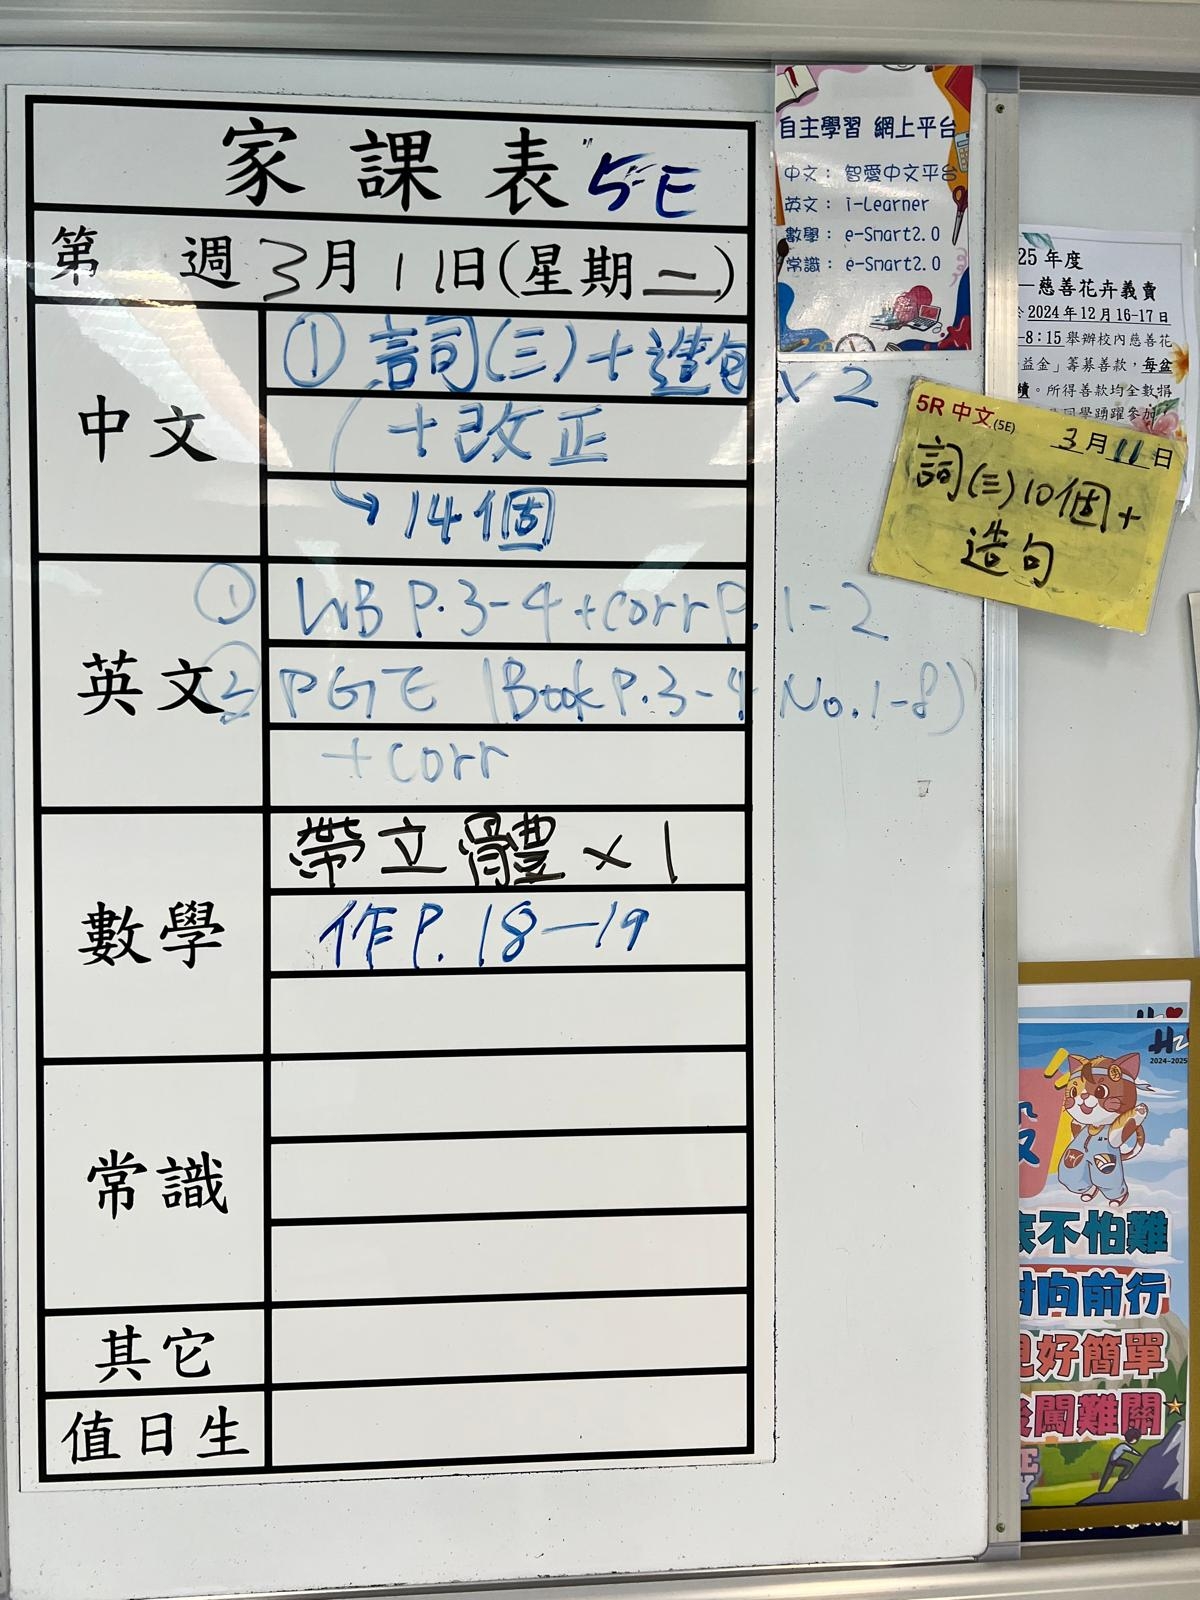 家課表 5E
第 週 3月11日(星期二)
中文
① 詞(三)+造句 x2
+改正
14個
英文
① WB P.3-4+corr P.1-2
② PGE (Book P.3-4 No.1-8)
+corr
數學
帶立體 x 1
作P.18-19
常識
其它
值日生
自主學習 網上平台
中文: 智愛中文平台
英文: i-Learner
數學: e-Smart2.0
常識: e-Smart2.0
25年度
慈善花卉義賣
2024年12月16-17日
8:15 舉辦校內慈善花
益金」籌募善款,每盆
。所得善款均全數捐
同學踴躍參加
5R 中文(5E) 3月11日
詞(三)10個+
造句
2024-2025
不怕難
向前行
好簡單
闖難關